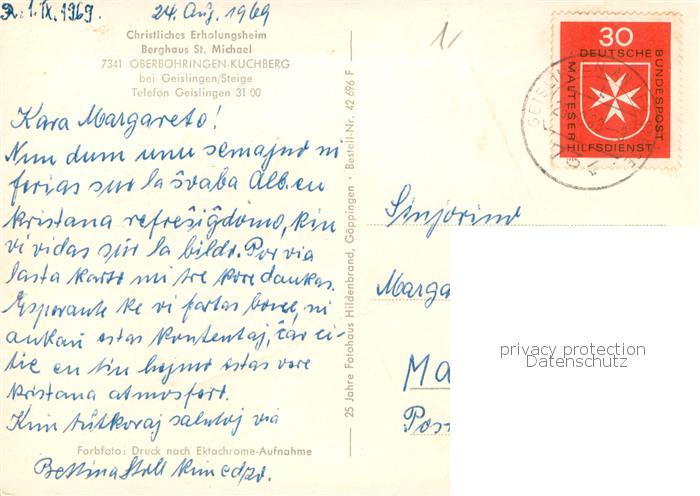 R. 1. IX. 1969. 24. Aug. 1969
Christliches Erholungsheim
Berghaus St. Michael
7341 OBERBÖHRINGEN-KUCHBERG
bei Geislingen/Steige
Telefon Geislingen 31 00
Kara Margareto!
Nun dum unu semajno ni
ferias sur la ŝvaba Alb en
kristana refreŝiĝdomo, kiun
vi vidas sur la bildo. Por via
lasta karto mi tre kore dankas.
Esperante ke vi fartas bone, ni
ankaŭ estas kontentaj, ĉar ĉi-
tie en tiu hejmo estas vere
kristana atmosfero.
Kun tutkoraj salutoj via
Bettina Stoll kun edzo.
Farbfoto: Druck nach Ektachrome-Aufnahme
25 Jahre Fotohaus Hildenbrand, Göppingen · Bestell-Nr. 42 696 F
30
DEUTSCHE
BUNDESPOST
MALTESER
HILFSDIENST
Sinjorino
Marga
Ma
Pos
privacy protection
Datenschutz